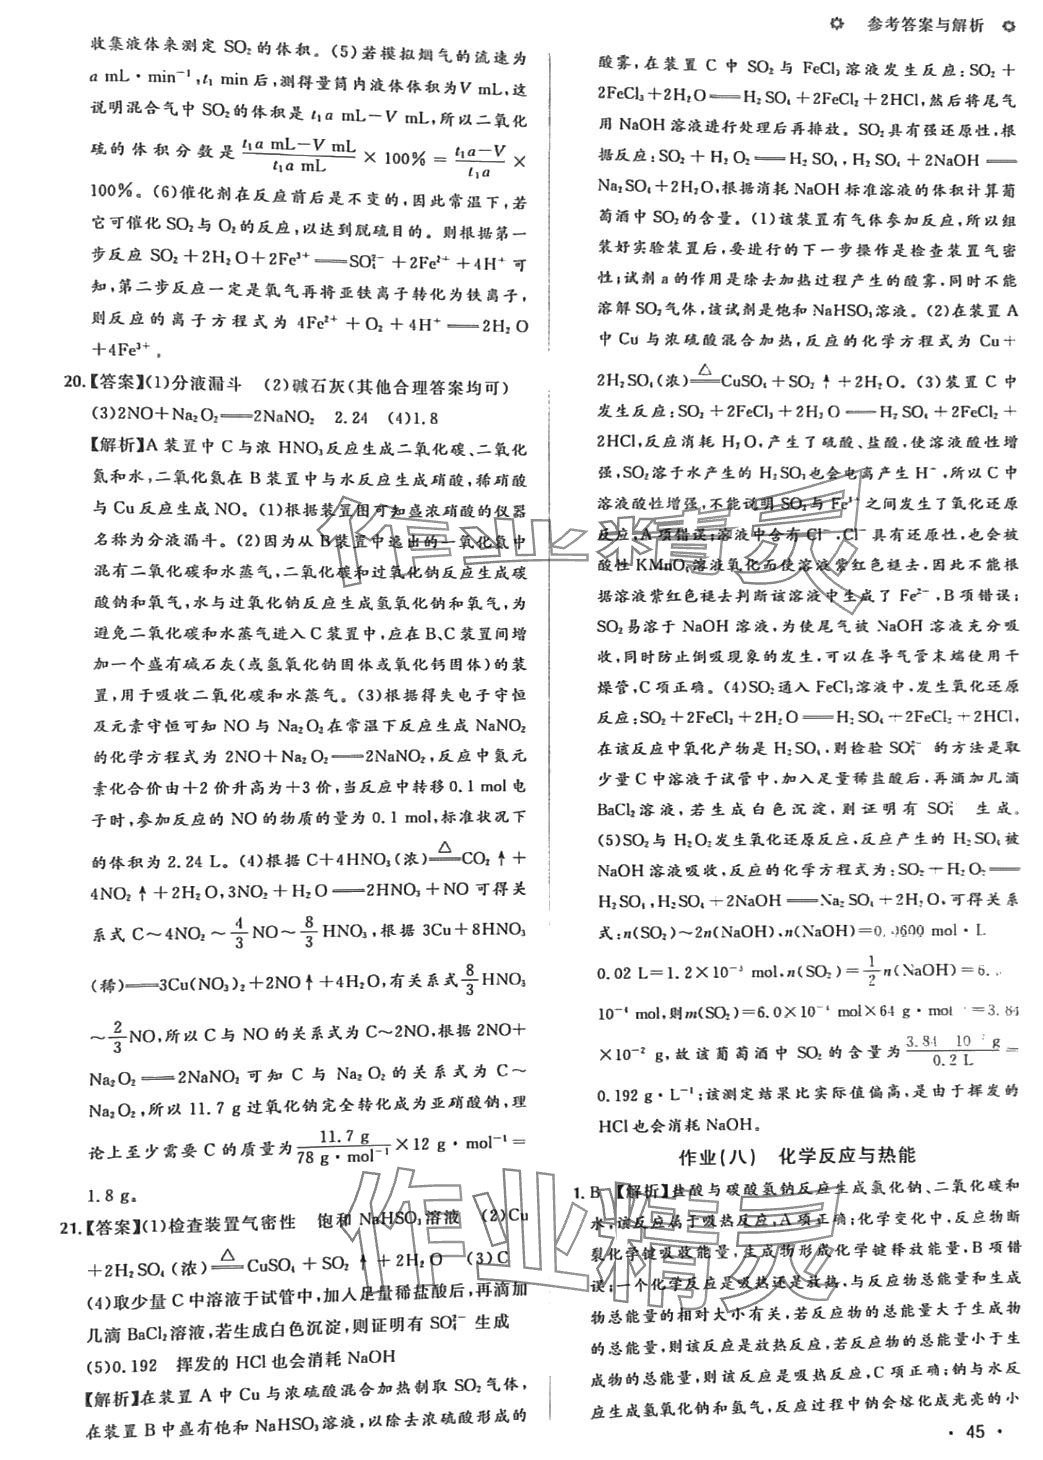 参考答案与解析
收集液体来测定 SO₂的体积。(5)若模拟烟气的流速为
a mL·min⁻¹,t₁ min后,测得量筒内液体体积为V mL,这
说明混合气中 SO₂的体积是 t₁a mL−V mL,所以二氧化
硫的体积分数是 (t₁a mL−V mL)/(t₁a mL) × 100% = (t₁a−V)/(t₁a) ×
100%。(6)催化剂在反应前后是不变的,因此常温下,若
它可催化 SO₂与 O₂的反应,以达到脱硫目的。则根据第一
步反应 SO₂+2H₂O+2Fe³⁺══SO₄²⁻+2Fe²⁺+4H⁺可
知,第二步反应一定是氧气再将亚铁离子转化为铁离子,
则反应的离子方程式为 4Fe²⁺+O₂+4H⁺══2H₂O
+4Fe³⁺。
20.【答案】(1)分液漏斗 (2)碱石灰(其他合理答案均可)
(3)2NO+Na₂O₂══2NaNO₂ 2.24 (4)1.8
【解析】A装置中C与浓 HNO₃反应生成二氧化碳、二氧化
氮和水,二氧化氮在B装置中与水反应生成硝酸,稀硝酸
与Cu反应生成NO。(1)根据装置图可知盛浓硝酸的仪器
名称为分液漏斗。(2)因为从B装置中逸出的一氧化氮中
混有二氧化碳和水蒸气,二氧化碳和过氧化钠反应生成碳
酸钠和氧气,水与过氧化钠反应生成氢氧化钠和氧气,为
避免二氧化碳和水蒸气进入C装置中,应在B、C装置间增
加一个盛有碱石灰(或氢氧化钠固体或氧化钙固体)的装
置,用于吸收二氧化碳和水蒸气。(3)根据得失电子守恒
及元素守恒可知 NO 与 Na₂O₂在常温下反应生成 NaNO₂
的化学方程式为 2NO+Na₂O₂══2NaNO₂,反应中氮元
素化合价由+2价升高为+3价,当反应中转移0.1 mol电
子时,参加反应的NO的物质的量为0.1 mol,标准状况下
的体积为2.24 L。(4)根据 C+4HNO₃(浓)=△=CO₂↑+
4NO₂↑+2H₂O,3NO₂+H₂O══2HNO₃+NO可得关
系式 C~4NO₂~4/3 NO~8/3 HNO₃,根据 3Cu+8HNO₃
(稀)══3Cu(NO₃)₂+2NO↑+4H₂O,有关系式 8/3 HNO₃
~2/3 NO,所以 C 与 NO 的关系式为 C~2NO,根据 2NO+
Na₂O₂══2NaNO₂可知 C 与 Na₂O₂的关系式为 C~
Na₂O₂,所以 11.7 g 过氧化钠完全转化成为亚硝酸钠,理
论上至少需要C的质量为 (11.7 g)/(78 g·mol⁻¹)×12 g·mol⁻¹=
1.8 g。
21.【答案】(1)检查装置气密性 饱和 NaHSO₃溶液 (2)Cu
+2H₂SO₄(浓)=△=CuSO₄+SO₂↑+2H₂O (3)C
(4)取少量C中溶液于试管中,加入足量稀盐酸后,再滴加
几滴 BaCl₂溶液,若生成白色沉淀,则证明有 SO₄²⁻生成
(5)0.192 挥发的 HCl也会消耗 NaOH
【解析】在装置A中Cu与浓硫酸混合加热制取 SO₂气体,
在装置B中盛有饱和 NaHSO₃溶液,以除去浓硫酸形成的
酸雾,在装置 C 中 SO₂ 与 FeCl₃ 溶液发生反应:SO₂+
2FeCl₃+2H₂O══H₂SO₄+2FeCl₂+2HCl,然后将尾气
用NaOH溶液进行处理后再排放。SO₂具有强还原性,根
据反应:SO₂+H₂O₂══H₂SO₄,H₂SO₄+2NaOH══
Na₂SO₄+2H₂O,根据消耗NaOH标准溶液的体积计算葡
萄酒中 SO₂的含量。(1)该装置有气体参加反应,所以组
装好实验装置后,要进行的下一步操作是检查装置气密
性;试剂a的作用是除去加热过程产生的酸雾,同时不能
溶解SO₂气体,该试剂是饱和NaHSO₃溶液。(2)在装置A
中Cu与浓硫酸混合加热,反应的化学方程式为 Cu+
2H₂SO₄(浓)=△=CuSO₄+SO₂↑+2H₂O。(3)装置C中
发生反应:SO₂+2FeCl₃+2H₂O══H₂SO₄+2FeCl₂+
2HCl,反应消耗 H₂O,产生了硫酸、盐酸,使溶液酸性增
强,SO₂溶于水产生的 H₂SO₃也会电离产生 H⁺,所以C中
溶液酸性增强,不能说明 SO₂与 Fe³⁺之间发生了氧化还原
反应,A项错误;溶液中含有Cl⁻,Cl⁻具有还原性,也会被
酸性KMnO₄溶液氧化而使溶液紫红色褪去,因此不能根
据溶液紫红色褪去判断该溶液中生成了 Fe²⁺,B项错误;
SO₂易溶于 NaOH 溶液,为使尾气被 NaOH 溶液充分吸
收,同时防止倒吸现象的发生,可以在导气管末端使用干
燥管,C项正确。(4)SO₂通入 FeCl₃溶液中,发生氧化还原
反应:SO₂+2FeCl₃+2H₂O══H₂SO₄+2FeCl₂+2HCl,
在该反应中氧化产物是 H₂SO₄,则检验 SO₄²⁻的方法是取
少量C中溶液于试管中,加入足量稀盐酸后,再滴加几滴
BaCl₂溶液,若生成白色沉淀,则证明有 SO₄²⁻生成。
(5)SO₂与 H₂O₂发生氧化还原反应,反应产生的 H₂SO₄被
NaOH溶液吸收,反应的化学方程式为:SO₂+H₂O₂══
H₂SO₄,H₂SO₄+2NaOH══Na₂SO₄+2H₂O,可得关系
式:n(SO₂)~2n(NaOH),n(NaOH)=0.0600 mol·L
0.02 L=1.2×10⁻³ mol,n(SO₂)=1/2 n(NaOH)=6.
10⁻⁴ mol,则m(SO₂)=6.0×10⁻⁴ mol×64 g·mol =3.84
×10⁻² g,故该葡萄酒中 SO₂的含量为 (3.84 10⁻² g)/(0.2 L)=
0.192 g·L⁻¹;该测定结果比实际值偏高,是由于挥发的
HCl也会消耗 NaOH。
作业(八) 化学反应与热能
1.B 【解析】盐酸与碳酸氢钠反应生成氯化钠、二氧化碳和
水,该反应属于吸热反应,A项正确;化学变化中,反应物断
裂化学键吸收能量,生成物形成化学键释放能量,B项错
误;一个化学反应是吸热还是放热,与反应物总能量和生成
物总能量的相对大小有关,若反应物的总能量大于生成物
的总能量,则该反应是放热反应,若反应物的总能量小于生
成物的总能量,则该反应是吸热反应,C项正确;钠与水反
应生成氢氧化钠和氢气,反应过程中钠会熔化成光亮的小
·45·
作业精灵
作业精灵